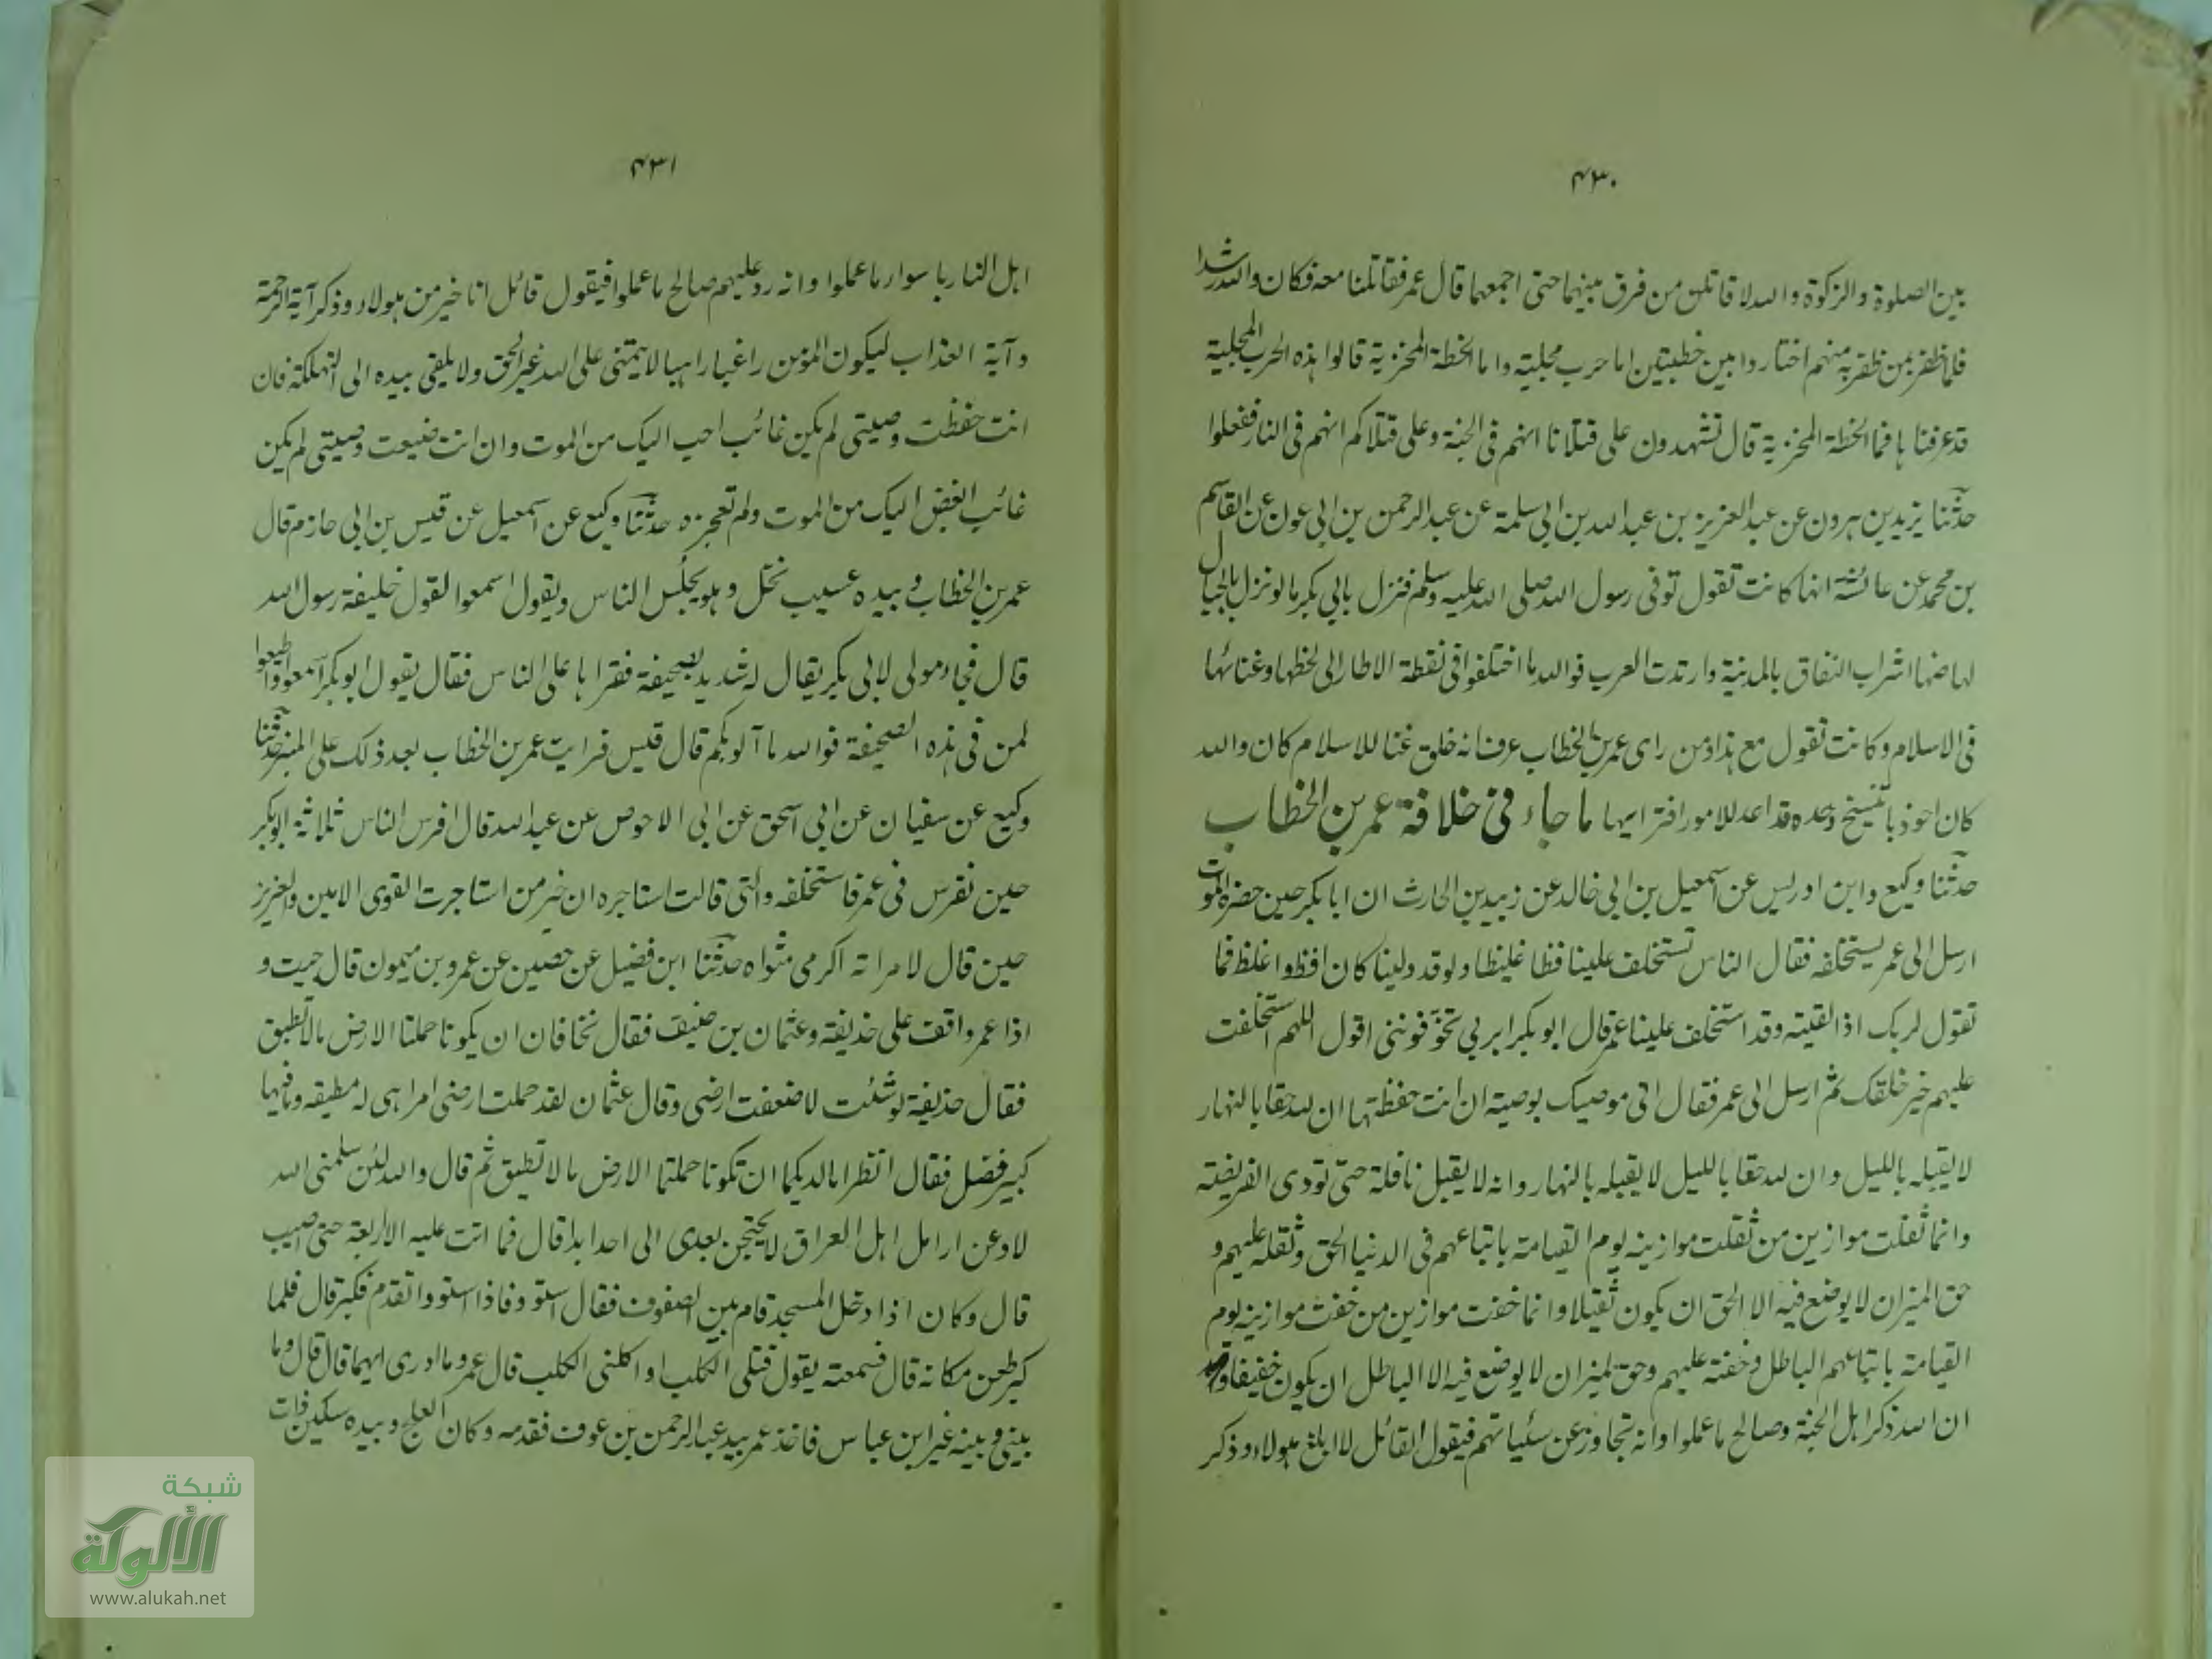 ٤٣٠
بين الصلوة والزكوة والله لاقاتلن من فرق بينهما حتى اجمعهما قال عمر فقاتلنا معه فكان والله رشدا
فلما ظفر بمن ظفر به منهم اختاروا بين خطبتين اما حرب مجلية واما الخطة المخزية قالوا هذه الحرب المجلية
قد عرفناها فما الخطة المخزية قال تشهدون على قتلانا انهم فى الجنة وعلى قتلاكم انهم فى النار ففعلوا
حدثنا يزيد بن هرون عن عبد العزيز بن عبد الله بن ابى سلمة عن عبد الرحمن بن ابى عون عن القاسم
بن محمد عن عائشة انها كانت تقول توفى رسول الله صلى الله عليه وسلم فنزل بابي بكر ما لو نزل بالجبال
لهاضها اشراب النفاق بالمدينة وارتدت العرب فوالله ما اختلفوا فى نقطة الا طار ابى لحظها وغنائها
فى الاسلام وكانت تقول مع هذا ومن راى عمر بن الخطاب عرف انه خلق غنا للاسلام كان والله
كان احوذيا نسيج وحده قد اعد للامور اقرانها ما جاء فى خلافة عمر بن الخطاب
حدثنا وكيع وابن ادريس عن اسمعيل بن ابى خالد عن زبيد بن الحارث ان ابا بكر حين حضره الموت
ارسل الى عمر يستخلفه فقال الناس تستخلف علينا فظا غليظا ولو قد ولينا كان افظ واغلظ فما
تقول لربك اذا لقيته وقد استخلف علينا عمر قال ابو بكر ابربي تخوفوننى اقول اللهم استخلفت
عليهم خير خلقك ثم ارسل الى عمر فقال انى موصيك بوصية ان انت حفظتها ان لله حقا بالنهار
لا يقبله بالليل وان لله حقا بالليل لا يقبله بالنهار وانه لا يقبل نافلة حتى تودى الفريضة
وانما ثقلت موازين من ثقلت موازينه يوم القيامة باتباعهم فى الدنيا الحق وثقله عليهم و
حق الميزان لا يوضع فيه الا الحق ان يكون ثقيلا وانما خفت موازين من خفت موازينه يوم
القيامة باتباعهم الباطل وخفته عليهم وحق لميزان لا يوضع فيه الا الباطل ان يكون خفيفا
ان الله ذكر اهل الجنة وصالح ما عملوا وانه تجاوز عن سئياتهم فيقول القائل لا ابلغ هولاء وذكر
٤٣١
اهل النار باسوار ما عملوا وانه رد عليهم صالح ما عملوا فيقول قائل انا خير من هولاء وذكر آية الرحمة
وآية العذاب ليكون المؤمن راغبا راهبا لا يتمنى على الله غير الحق ولا يلقى بيده الى التهلكة فان
انت حفظت وصيتى لم يكن غائب احب اليك من الموت وان انت ضيعت وصيتى لم يكن
غائب ابغض اليك من الموت ولم تعجزه حدثنا وكيع عن اسمعيل عن قيس بن ابى حازم قال
عمر بن الخطاب وبيده عسيب نخل وهو يجلس الناس ويقول اسمعوا لقول خليفة رسول الله
قال فجاء مولى لابى بكر يقال له شديد بصحيفة فقراها على الناس فقال يقول ابو بكر اسمعوا واطيعوا
لمن فى هذه الصحيفة فوالله ما آلوتكم قال قيس فرايت عمر بن الخطاب بعد ذلك على المنبر حدثنا
وكيع عن سفيان عن ابى اسحق عن ابى الاحوص عن عبد الله قال افرس الناس ثلاثة ابو بكر
حين تفرس فى عمر فاستخلفه والتى قالت استاجره ان خير من استاجرت القوى الامين والعزيز
حين قال لامراته اكرمى مثواه حدثنا ابن فضيل عن حصين عن عمرو بن ميمون قال جيت و
اذا عمر واقف على حذيفة وعثمان بن حنيف فقال تخافان ان يكونا حملتا الارض ما لا تطيق
فقال حذيفة لو شئت لاضعفت ارضى وقال عثمان لقد حملت ارضى امرا هى له مطيقه وما فيها
كبير فضل فقال انظرا ما لديكما ان تكونا حملتما الارض ما لا تطيق ثم قال والله لئن سلمنى الله
لادعن ارامل اهل العراق لا يحتجن بعدى الى احد ابدا قال فما اتت عليه الا اربعة حتى اصيب
قال وكان اذا دخل المسجد قام بين الصفوف فقال استووا فاذا استووا تقدم فكبر قال فلما
كبر طعن مكانه قال فسمعته يقول قتلى الكلب او اكلنى الكلب قال عمرو ما ادرى ايهما قال قال وما
بينى وبينه غير ابن عباس فاخذ عمر بيد عبد الرحمن بن عوف فقدمه وكان العلج وبيده سكين ذات
شبكة
الألوكة
www.alukah.net